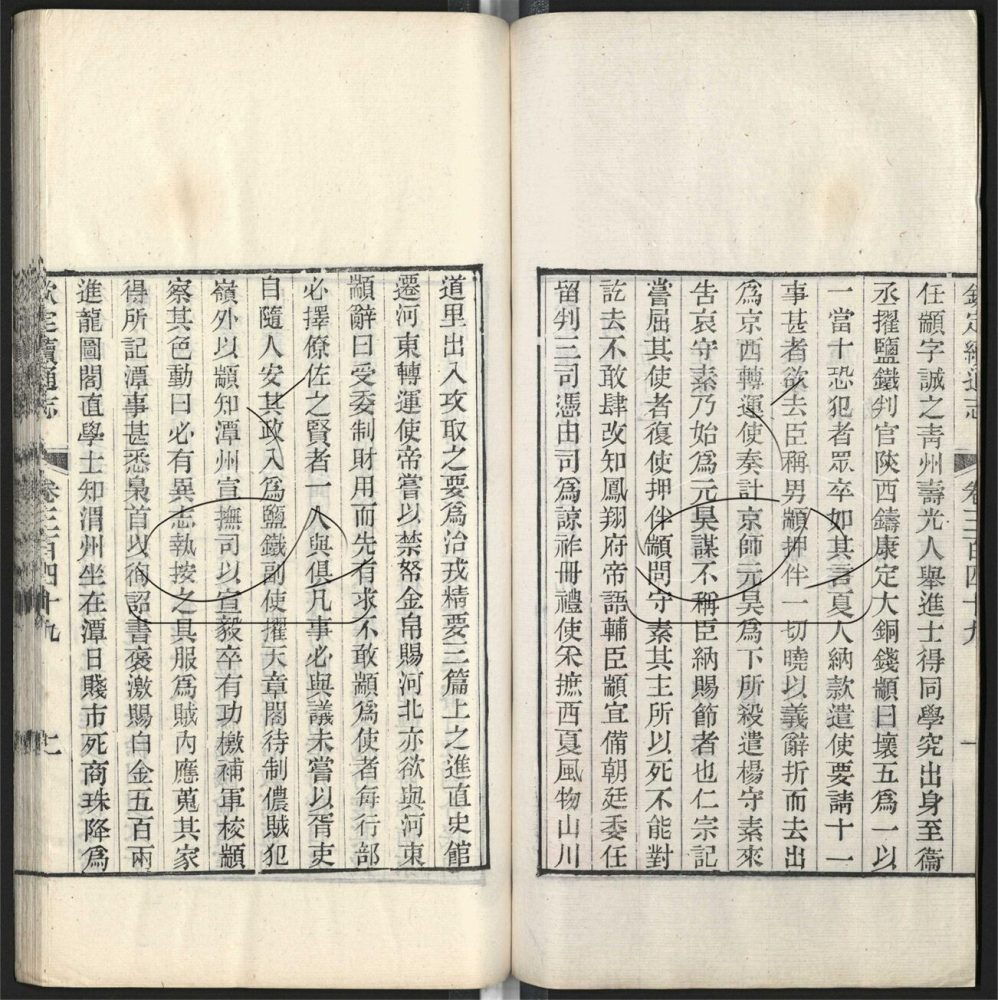 欽定續通志 卷三百四十九 一
任顓字誠之靑州壽光人舉進士得同學究出身至衞
丞擢鹽鐵判官陝西鑄康定大銅錢顓曰壞五爲一以
一當十恐犯者眾卒如其言夏人納款遣使要請十一
事甚者欲去臣稱男顓押伴一切曉以義辭折而去出
爲京西轉運使奏計京師元昊爲下所殺遣楊守素來
吿哀守素乃始爲元昊謀不稱臣納賜節者也仁宗記
嘗屈其使者復使押伴顓問守素其主所以死不能對
訖去不敢肆改知鳳翔府帝語輔臣顓宜備朝廷委任
留判三司憑由司爲諒祚冊禮使采摭西夏風物山川
道里出入攻取之要爲治戎精要三篇上之進直史館
遷河東轉運使帝嘗以禁帑金帛賜河北亦欲與河東
顓辭曰受委制財用而先有求不敢顓爲使者每行部
必擇僚佐之賢者一人與俱凡事必與議未嘗以胥吏
自隨人安其政入爲鹽鐵副使擢天章閣待制儂賊犯
嶺外以顓知潭州宣撫司以宣毅卒有功檄補軍校顓
察其色動曰必有異志執按之具服爲賊內應蒐其家
得所記潭事甚悉梟首以徇詔書褒激賜白金五百兩
進龍圖閣直學士知渭州坐在潭日賤市死商珠降爲
欽定續通志 卷三百四十九 七